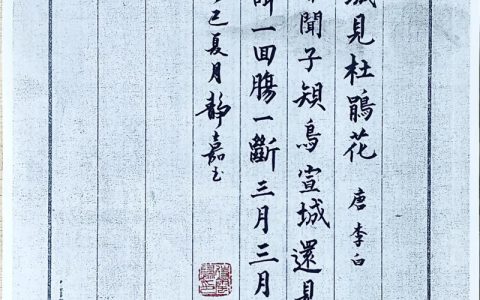 城見杜鵑花 唐 李白
聞子規鳥宣城還見
叫一回腸一斷三月三月
巳夏月靜嘉